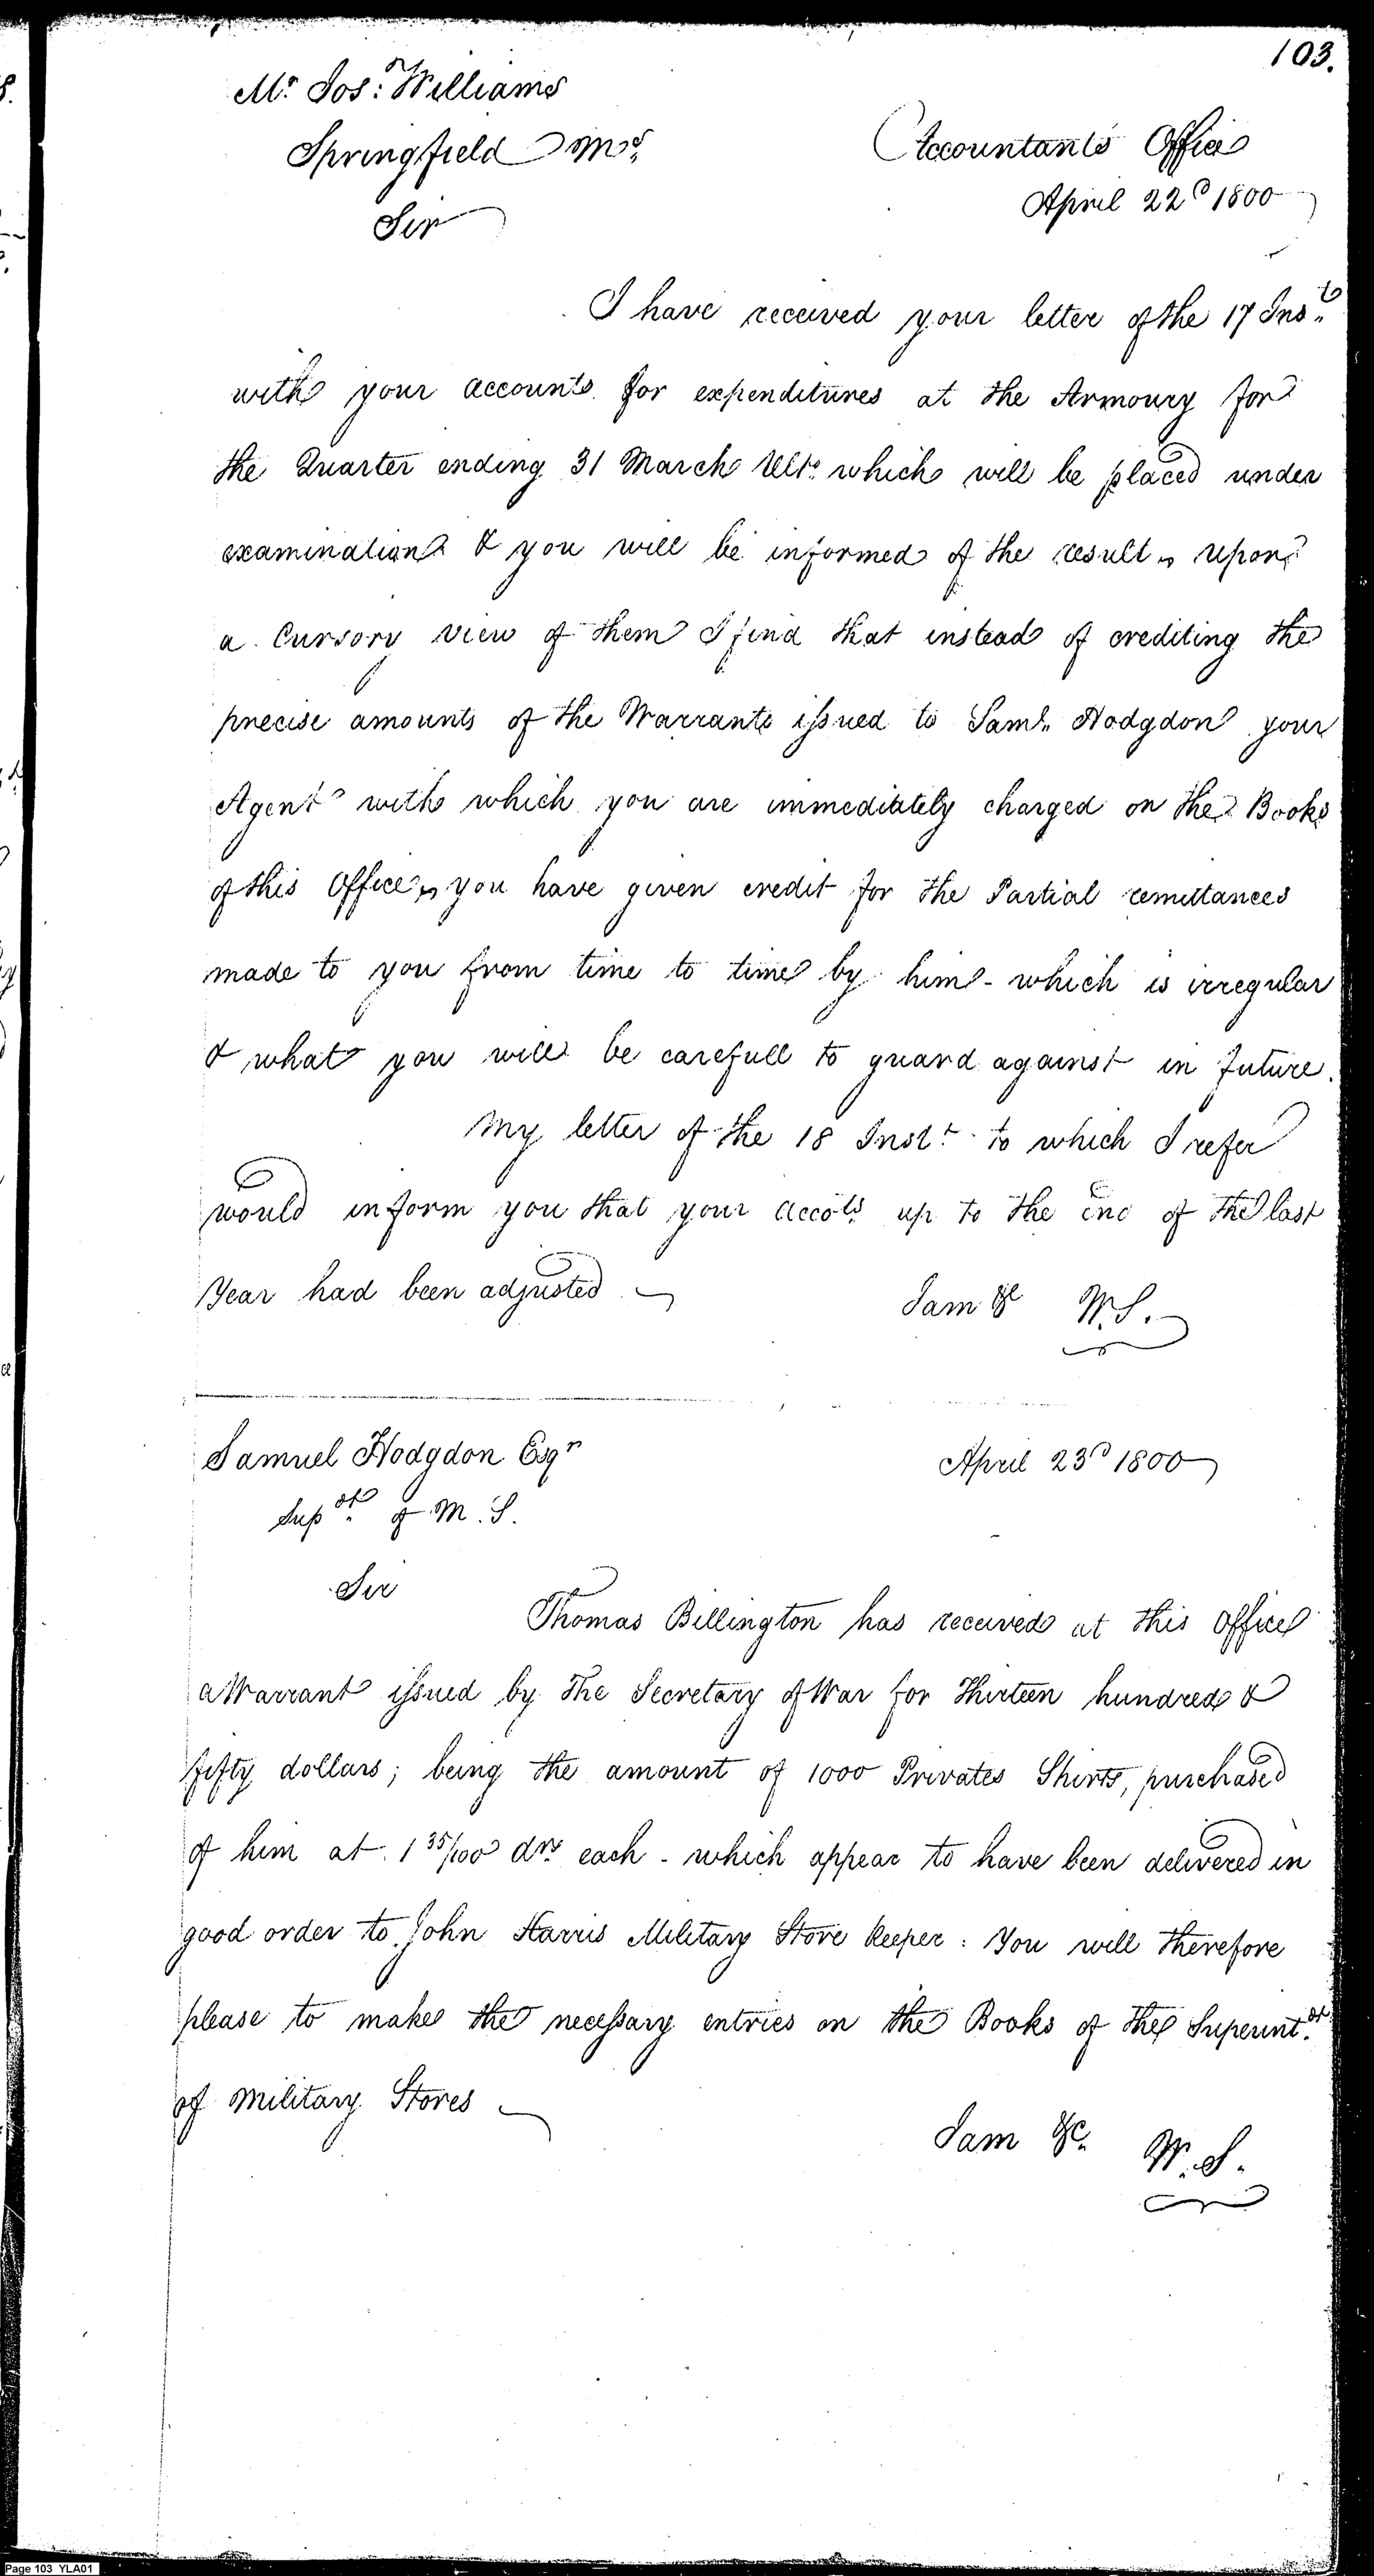 103.
Mr. Jos: Williams
Springfield Ms.
Accountants Office
April 22d 1800
Sir
I have received your letter of the 17 Inst.
with your accounts for expenditures at the Armoury for
the Quarter ending 31 March Ulto. which will be placed under
examination & you will be informed of the result, upon
a Cursory view of them I find that instead of crediting the
precise amounts of the Warrants issued to Saml. Hodgdon your
Agent with which you are immediately charged on the Books
of this Office, you have given credit for the Partial remittances
made to you from time to time by him - which is irregular
& what you will be carefull to guard against in future.
My letter of the 18 Inst. to which I refer
would inform you that your accots. up to the end of the last
Year had been adjusted
I am &c W.S.
Samuel Hodgdon Esqr
April 23d 1800
Supdt. of M. S.
Sir
Thomas Billington has received at this office
a Warrant issued by the Secretary of War for Thirteen hundred &
fifty dollars; being the amount of 1000 Privates Shirts, purchased
of him at 1 35/100 drs. each - which appear to have been delivered in
good order to John Harris Military Store keeper: You will therefore
please to make the necessary entries on the Books of the Superintdt.
of Military Stores
I am &c. W. S.
Page 103 YLA01